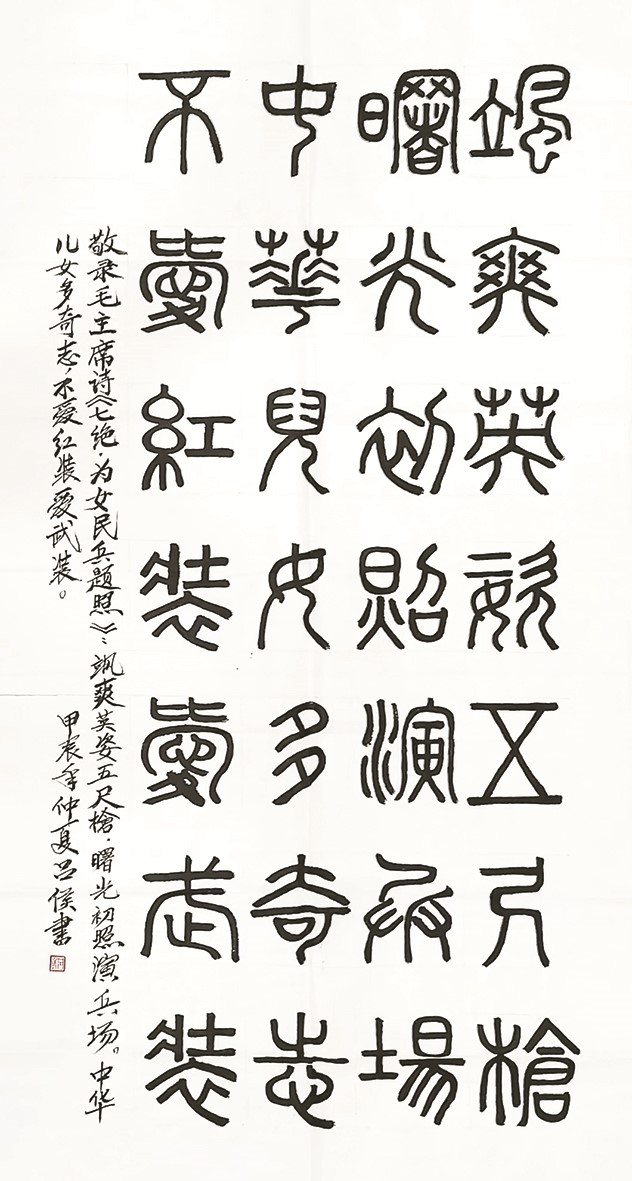 颯爽英姿五尺槍
曙光初照演兵場
中華兒女多奇志
不愛紅裝愛武裝
敬录毛主席诗《七绝·为女民兵题照》:飒爽英姿五尺槍,曙光初照演兵场。中华
儿女多奇志,不爱红装爱武装。
甲辰年仲夏吕侯書